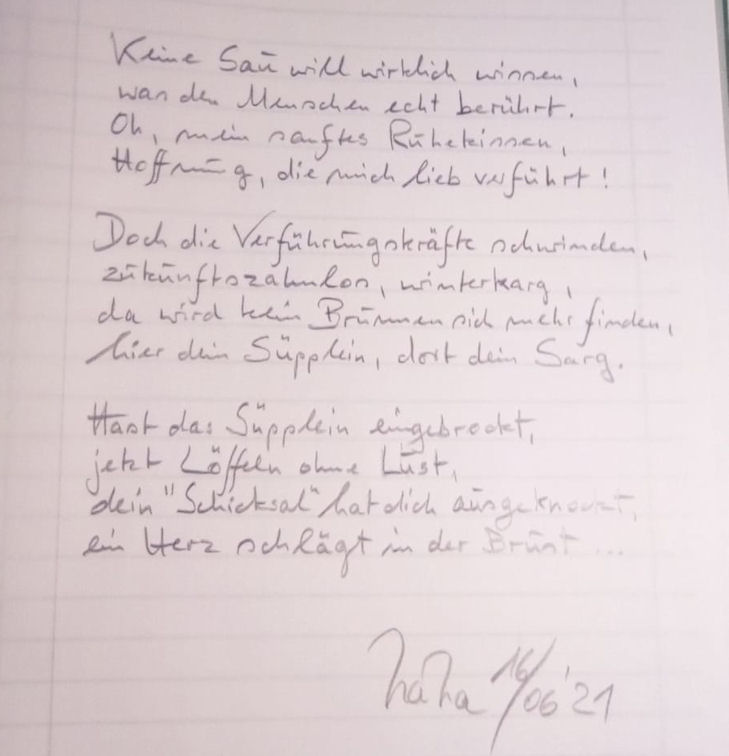 Keine Sau will wirklich wissen,
was den Menschen echt berührt.
Oh, mein sanftes Ruhekissen,
Hoffnung, die mich lieb verführt!
Doch die Verführungskräfte schwinden,
zukunftszahnlos, winterkarg,
da wird kein Brunnen sich mehr finden,
hier dein Süpplein, dort dein Sarg.
Hast das Süpplein eingebrockt,
jetzt Löffeln ohne Lust,
dein "Schicksal" hat dich ausgeknockt,
ein Herz schlägt in der Brust ...
haha 16/06'21